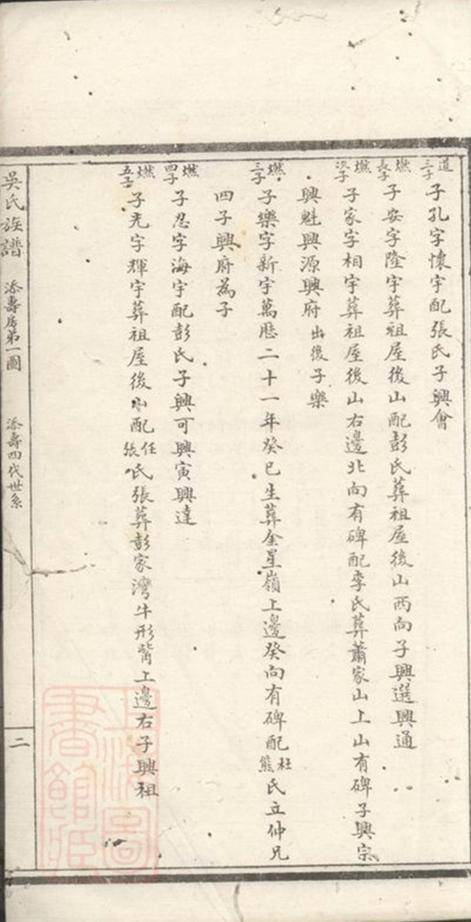 道三子 子孔字懷宇配張氏子興會
燃長子 子安字隆宇葬祖屋後山配彭氏葬祖屋後山西向子興選興通
燃次子 子家字相宇葬祖屋後山右邊北向有碑配李氏葬蕭家山上山有碑子興宗
興魁興源興府出後子樂
燃三子 子樂字新宇萬曆二十一年癸巳生葬金星嶺上邊癸向有碑配杜熊氏立仲兄
四子興府為子
燃四子 子忍字海宇配彭氏子興可興寅興達
燃五子 子光字輝宇葬祖屋後山配任張氏張葬彭家灣牛形背上邊右子興祖
吳氏族譜 添壽房第一圖 添壽四代世系 二
上海圖書館藏